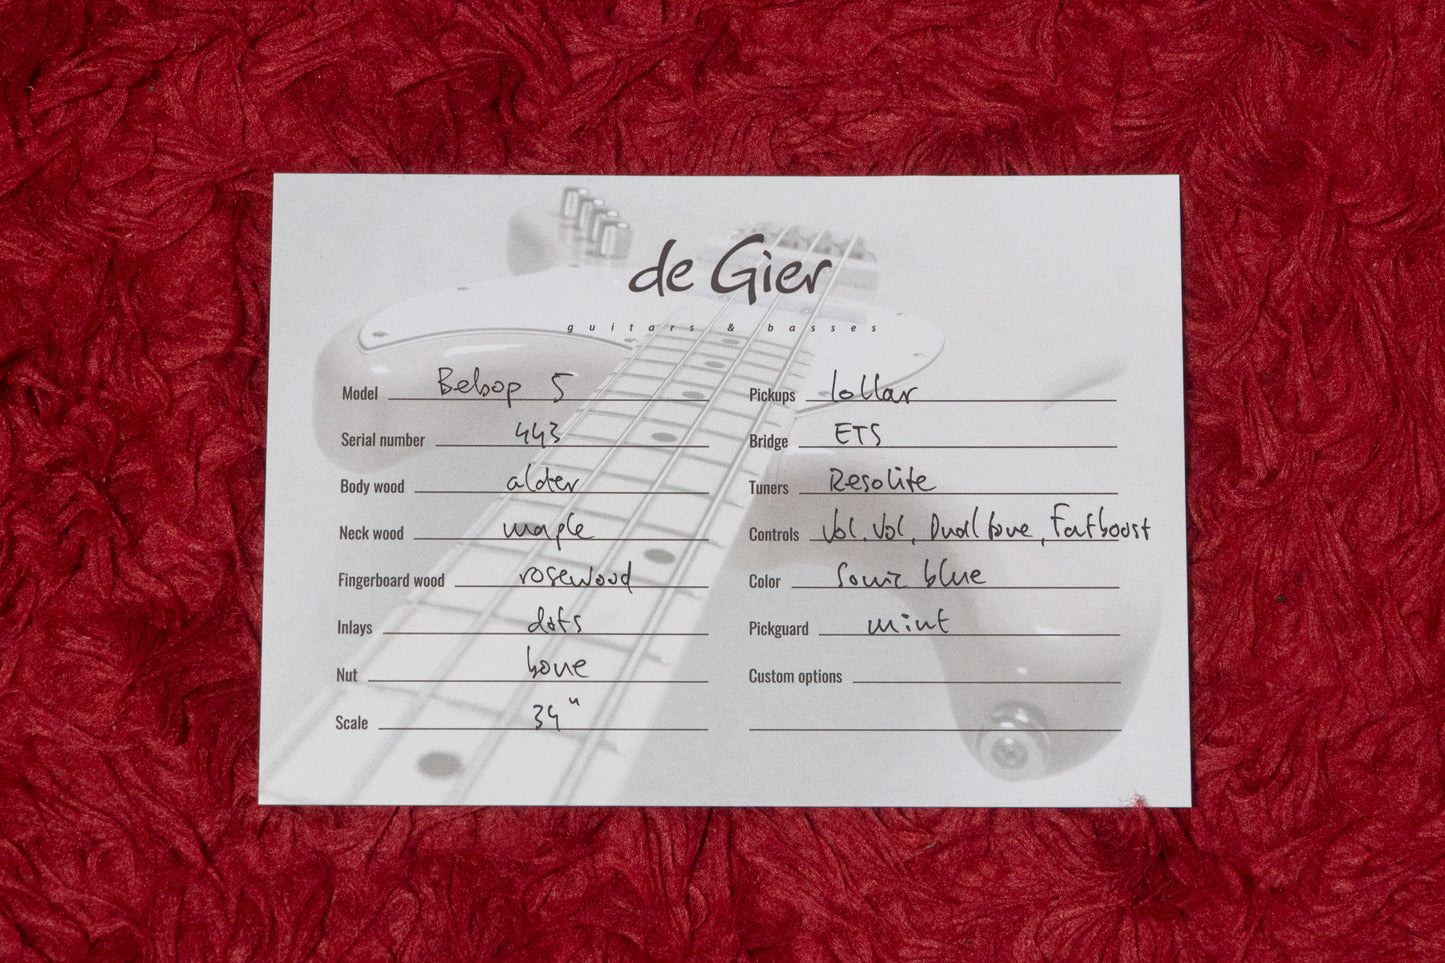 de Gier
guitars & basses
Model Bebop 5
Serial number 443
Body wood alder
Neck wood maple
Fingerboard wood rosewood
Inlays dots
Nut bone
Scale 34"
Pickups lollar
Bridge ETS
Tuners Resolite
Controls Vol, Vol, Dual tone, Fatboost
Color Sonic blue
Pickguard mint
Custom options